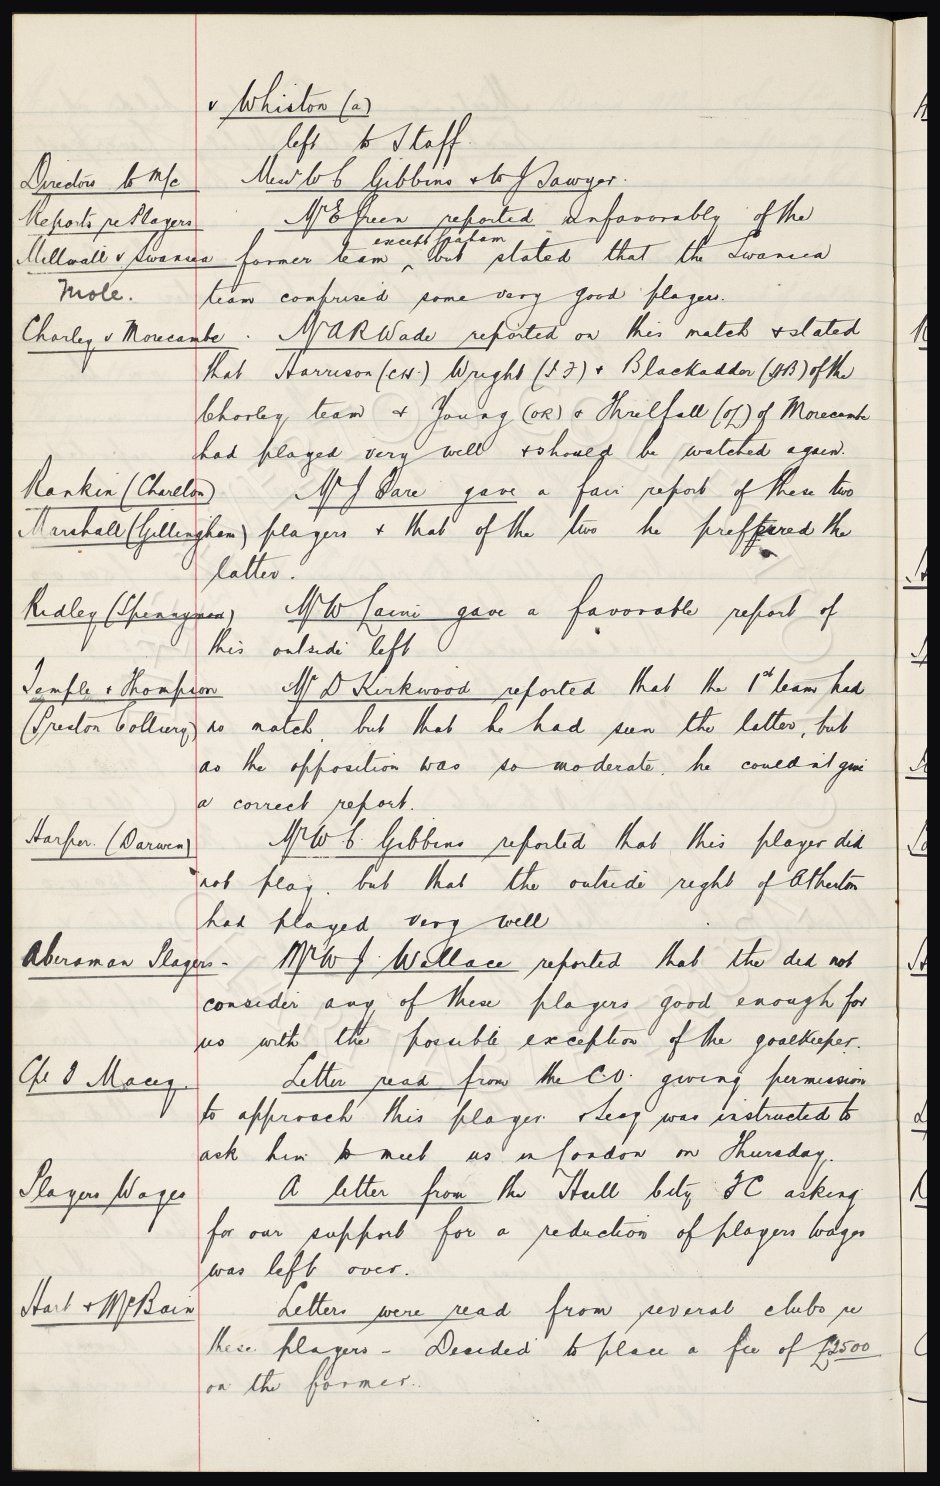 v Whiston (a)
left to Staff.
Directors to M/c Messrs W C Gibbins & W J Sawyer.
Reports re Players Mr E Green reported unfavorably of the
except Graham
Millwall v Swansea former team ^ but stated that the Swansea
Mole. team comprised some very good players.
Chorley v Morecambe. Mr A R Wade reported on this match & stated
that Harrison (CH.) Wright (I.F) & Blackadder (HB) of the
Chorley team & Young (OR) & Threlfall (OL) of Morecambe
had played very well & should be watched again.
Rankin (Charlton) Mr J Dare gave a fair report of these two
Marshall (Gillingham) players & that of the two he preffered the
latter.
Ridley (Spennymoor) Mr W gave a favorable report of
this outside left
Temple & Thompson Mr D Kirkwood reported that the 1st team had
(Preston Colliery) no match, but that he had seen the latter, but
as the opposition was so moderate, he couldn't give
a correct report.
Harper. (Darwen) Mr W C. Gibbins reported that this player did
not play, but that the outside right of Atherton
had played very well
Aberaman Players - Mr W J. Wallace reported that the did not
consider any of these players good enough for
us with the possible exception of the goalkeeper.
Cpl J Macey. Letter read from the C.O. giving permission
to approach this player & Secy was instructed to
ask him to meet us in London on Thursday.
Players Wages A letter from the Hull City FC asking
for our support for a reduction of players wages
was left over.
Hart & McBain Letters were read from several clubs re
these players - Decided to place a fee of £2500
on the former.